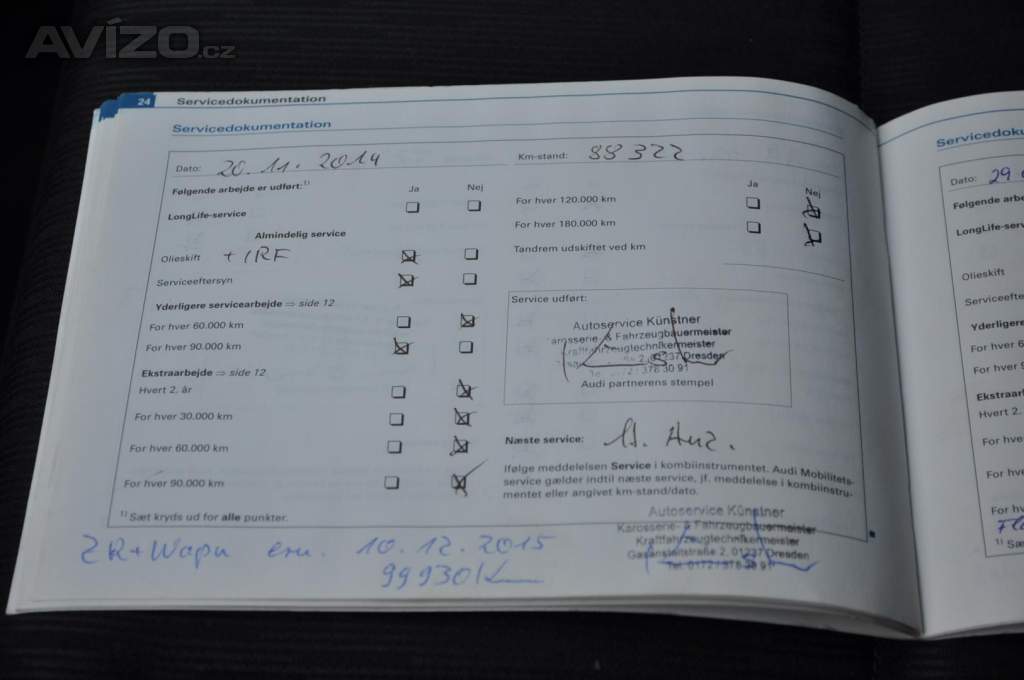 AVÍZO.cz
24 Servicedokumentation
Servicedokumentation
Dato: 20.11.2014
Km-stand: 88322
Følgende arbejde er udført:¹⁾
Ja Nej
LongLife-service
Almindelig service
Olieskift + IRF
Serviceeftersyn
Yderligere servicearbejde ⇒ side 12
For hver 60.000 km
For hver 90.000 km
Ekstraarbejde ⇒ side 12
Hvert 2. år
For hver 30.000 km
For hver 60.000 km
For hver 90.000 km
¹⁾ Sæt kryds ud for alle punkter.
Ja Nej
For hver 120.000 km
For hver 180.000 km
Tandrem udskiftet ved km
Service udført:
Autoservice Künstner
arosserie- & Fahrzeugbauermeister
Kraftfahrzeugtechnikermeister
2, 01237 Dresden
Audi partnerens stempel
Næste service: lt. Anz.
Ifølge meddelelsen Service i kombiinstrumentet. Audi Mobilitets-
service gælder indtil næste service, jf. meddelelse i kombiinstru-
mentet eller angivet km-stand/dato.
Autoservice Künstner
Karosserie- & Fahrzeugbauermeister
Kraftfahrzeugtechnikermeister
2, 01237 Dresden
Tel. 0172 / 378 30 91
ZR+Wapu ern. 10.12.2015
99930 K
Servicedoku
Dato: 29
Følgende arbe
LongLife-serv
Olieskift
Serviceefte
Yderligere
For hver 6
For hver 9
Ekstraar
Hvert 2.
For hve
For hv
For hv
¹⁾ Sæ